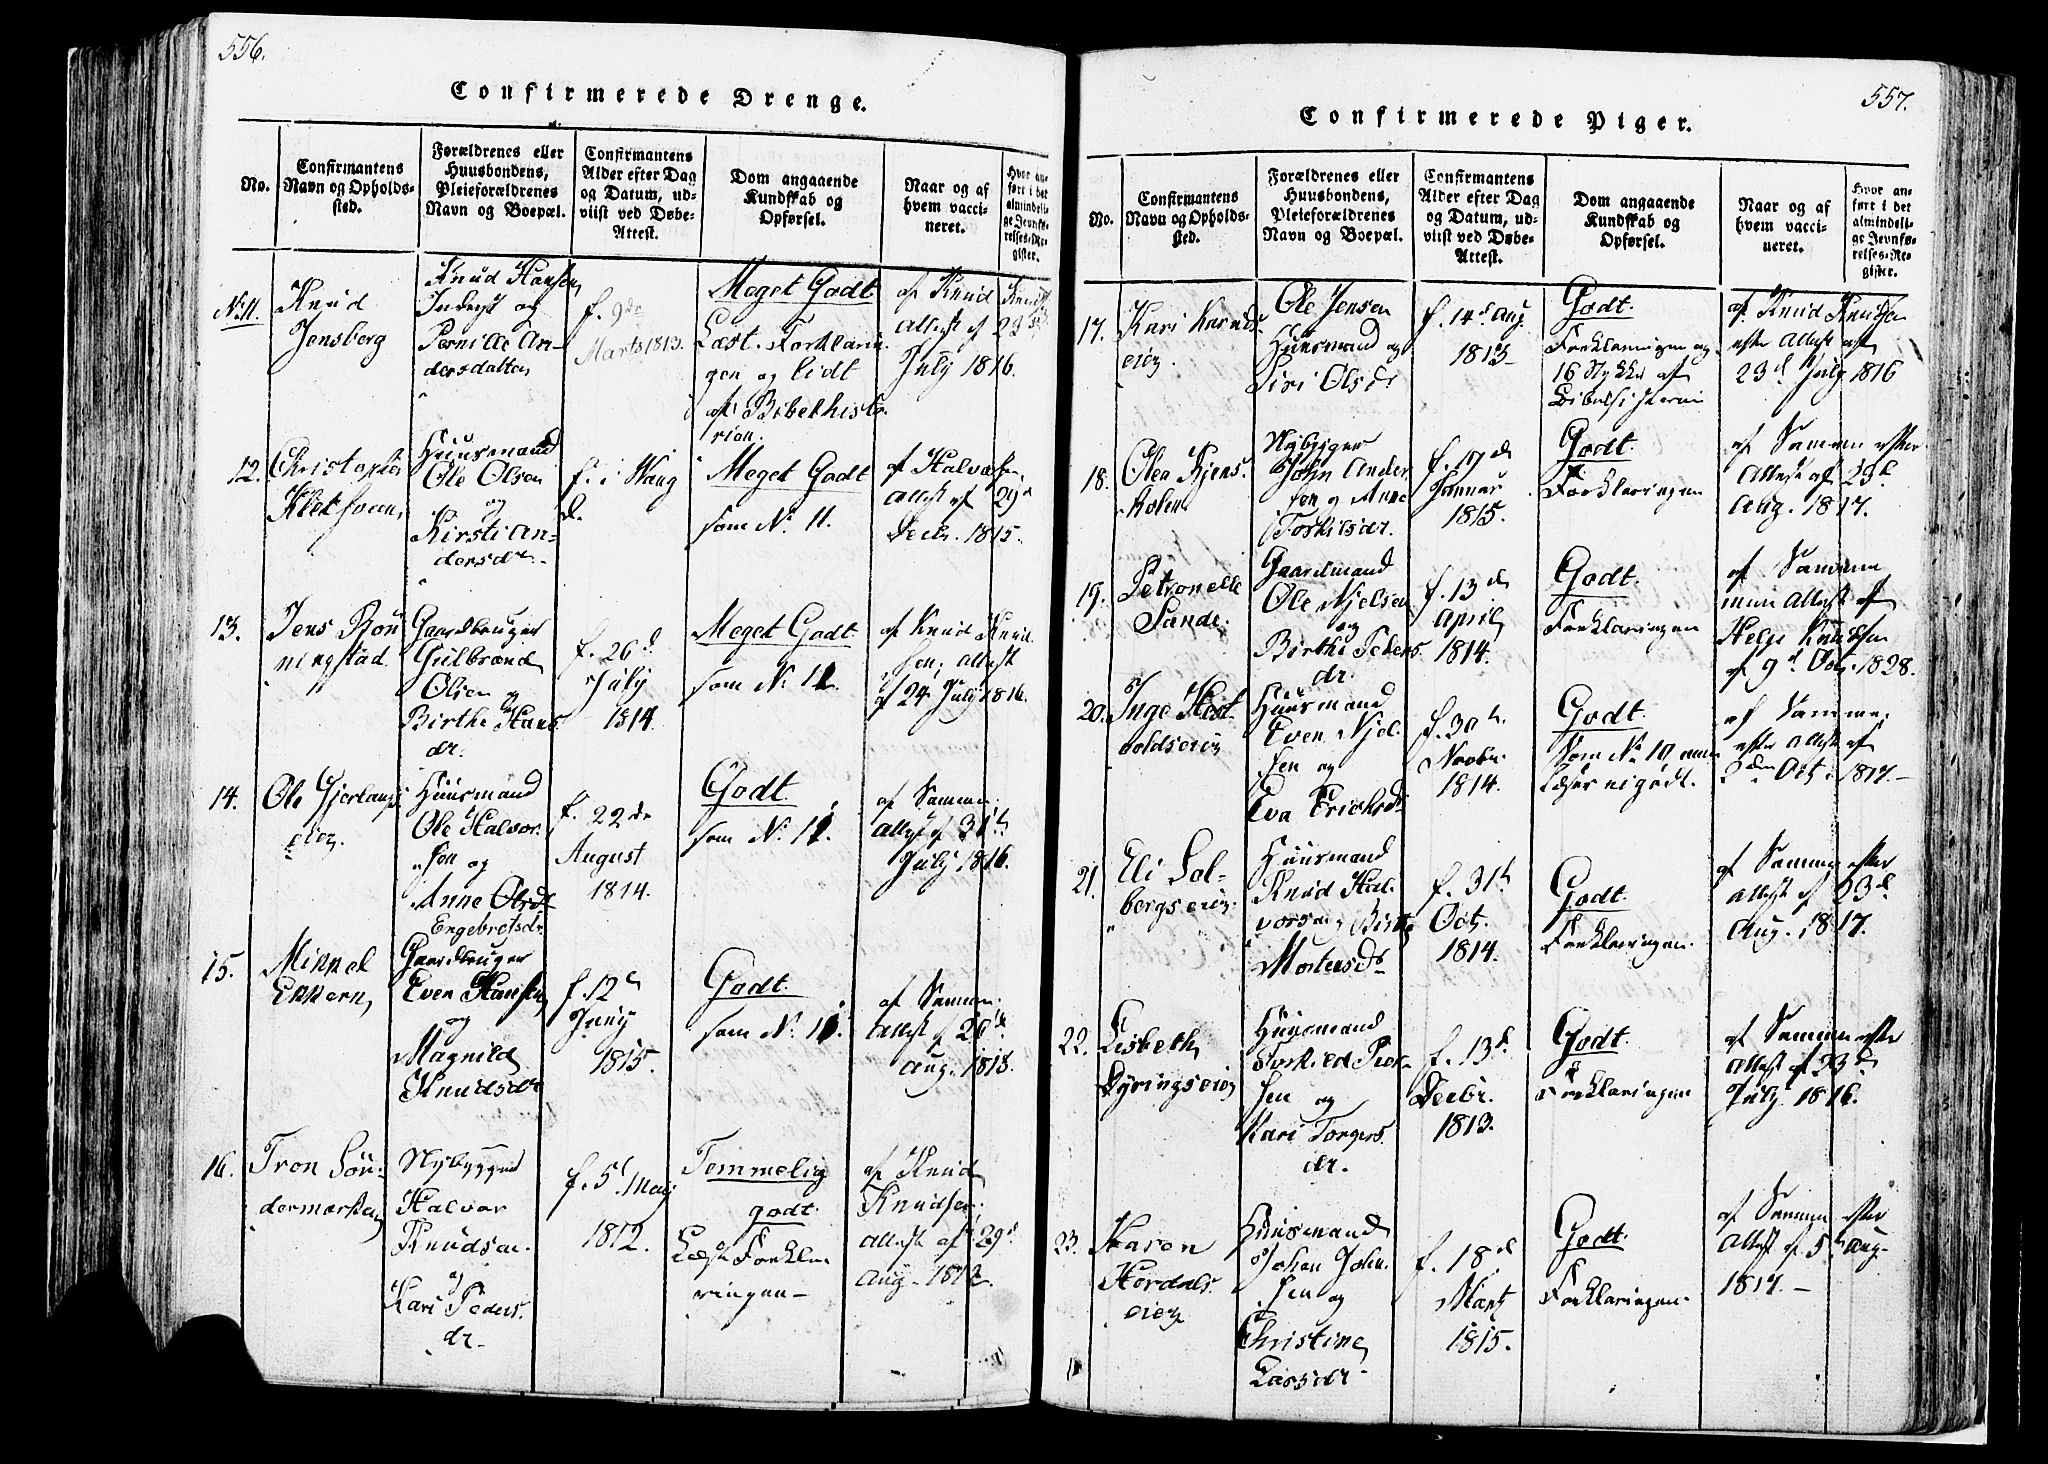 556.
Confirmerede Drenge.
No.
Confirmantens
Navn og Opholds-
sted.
Forældrenes eller
Huusbondens,
Pleieforældrenes
Navn og Boepæl.
Confirmantens
Alder efter Dag
og Datum, ud-
viist ved Døbe-
Attest.
Dom angaaende
Kundskab og
Opførsel.
Naar og af
hvem vacci-
neret.
Hvor an-
ført i det
almindeli-
ge Jevnfø-
relses-Re-
gister.
No. 11.
Knud
Jensberg
Knud Hansen
Inderst og
Pernille An-
dersdatter
f. 9de
Marts 1813.
Meget Godt
Læst Forklarin
gen og lidt
af Bibelhisto
rien.
af Knud Knud
Attest af 23
July 1816.
12.
Christopher
Huusmand
Ole Olsen
og
Kirsti An-
dersdr.
f. i Wang
d.
Meget Godt
som No. 11.
af Halvor
Attest af 29de
Decbr. 1815.
13.
Jens Røn
ningstad
Gaardbruger
Gulbrand
Olsen og
Birthe Hans
dr.
f. 26d
July
1814.
Meget Godt
som No. 11.
af Knud Knud
sen, Attest
af 24 July 1816.
14.
Ole
eier.
Huusmand
Ole Halvor
sen og
Anne Olsdr
Engebretsdr
f. 22de
August
1814.
Godt
som No. 11.
af Samme
Attest af 31th
July 1816.
15.
Mikkel
Ekkern
Gaardbruger
Even Hansen
og
Magnild
Knudsdr
f. 12th
Juny
1815.
Godt
som No. 11.
af Samme
Attest af 26de
Aug. 1818.
16.
Tron Søn-
dermarken
Nybygger
Halvor
Knudsen
og
Kari Peders
dr.
f. 5t May
1812.
Temmelig
godt.
Læst Forkla
ringen
af Knud
Knudsen
Attest af 29d
Aug. 1812.
557.
Confirmerede Piger.
No.
Confirmantens
Navn og Opholds-
sted.
Forældrenes eller
Huusbondens,
Pleieforældrenes
Navn og Boepæl.
Confirmantens
Alder efter Dag
og Datum, ud-
viist ved Døbe-
Attest.
Dom angaaende
Kundskab og
Opførsel.
Naar og af
hvem vacci-
neret.
Hvor an-
ført i det
almindeli-
ge Jevnfø-
relses-Re-
gister.
17.
Kari
eier
Ole Jensen
Huusmand og
Siri Olsdr
f. 14d Aug.
1813
Godt.
Forklaringen og
16 Stykker af
Bibelhistorien
af Knud Knudsen
efter Attest af
23d July 1816
18.
Olea Kjens-
Nybygger
John Ander
sen og Anne
Torkilsdr.
f. 19de
Januar
1815.
Godt.
Forklaringen
af Samme efter
Attest af 23d
Aug. 1817.
19.
Petronelle
Sande.
Gaardmand
Ole Njelsen
og
Birthe Peders
dr.
f. 13de
April
1814.
Godt.
Forklaringen
af Samme
men Attest af
Helge Knudsen
af 9d Oct. 1828.
20.
Inge
Huusmand
Even Njel
sen og
Eva Erichsdr
f. 30th
Novbr.
1814.
Godt.
Som No 10, men
læser ei godt.
af Samme
efter Attest af
2den Oct. 1817.
21.
Eli Sol-
bergseier
Huusmand
Knud Hal
vorsen og Birthe
Mortensdr
f. 31th
Oct.
1814.
Godt.
Forklaringen.
af Samme efter
Attest af 23d
Aug. 1817.
22.
Lisbeth
Dyringseier
Huusmand
Torkild Peer-
sen og
Kari Torgers
dr.
f. 13d
Decbr.
1813.
Godt.
Forklaringen
af Samme efter
Attest af 23d
July 1816.
23.
Karen
Hordals
eier
Huusmand
Johan John
sen og
Christine
Larsdr
f. 18d
Marts
1815.
Godt.
Forklaringen.
af Samme efter
Attest af 5th Aug.
1817.